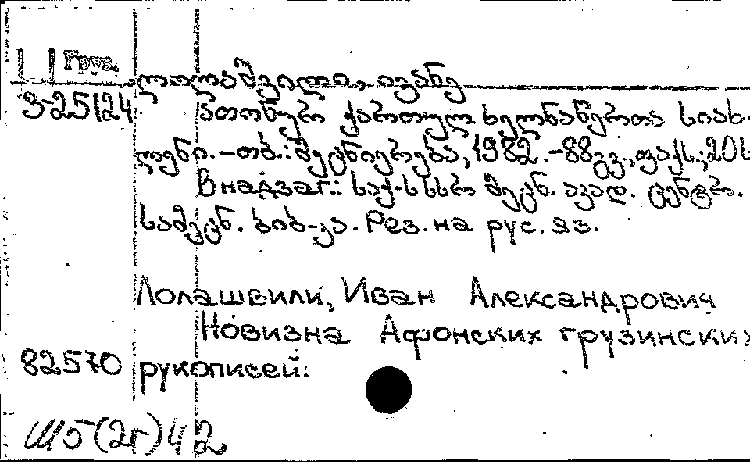 Груз.
ლოლაშვილი, ივანე
3-25124
ათონურ ქართულ ხელნაწერთა სიახ-
ლენი.-თბ.: მეცნიერება, 1982.-88გვ., ფაქს.; 20ს
В надзаг.: საქ. სსრ მეცნ. აკად. ცენტრ.
სამეცნ. ბიბ-კა. Рез. на рус. яз.
Лолашвили, Иван Александрович
Новизна Афонских грузинских
82570 рукописей.
Ш5(2г)42